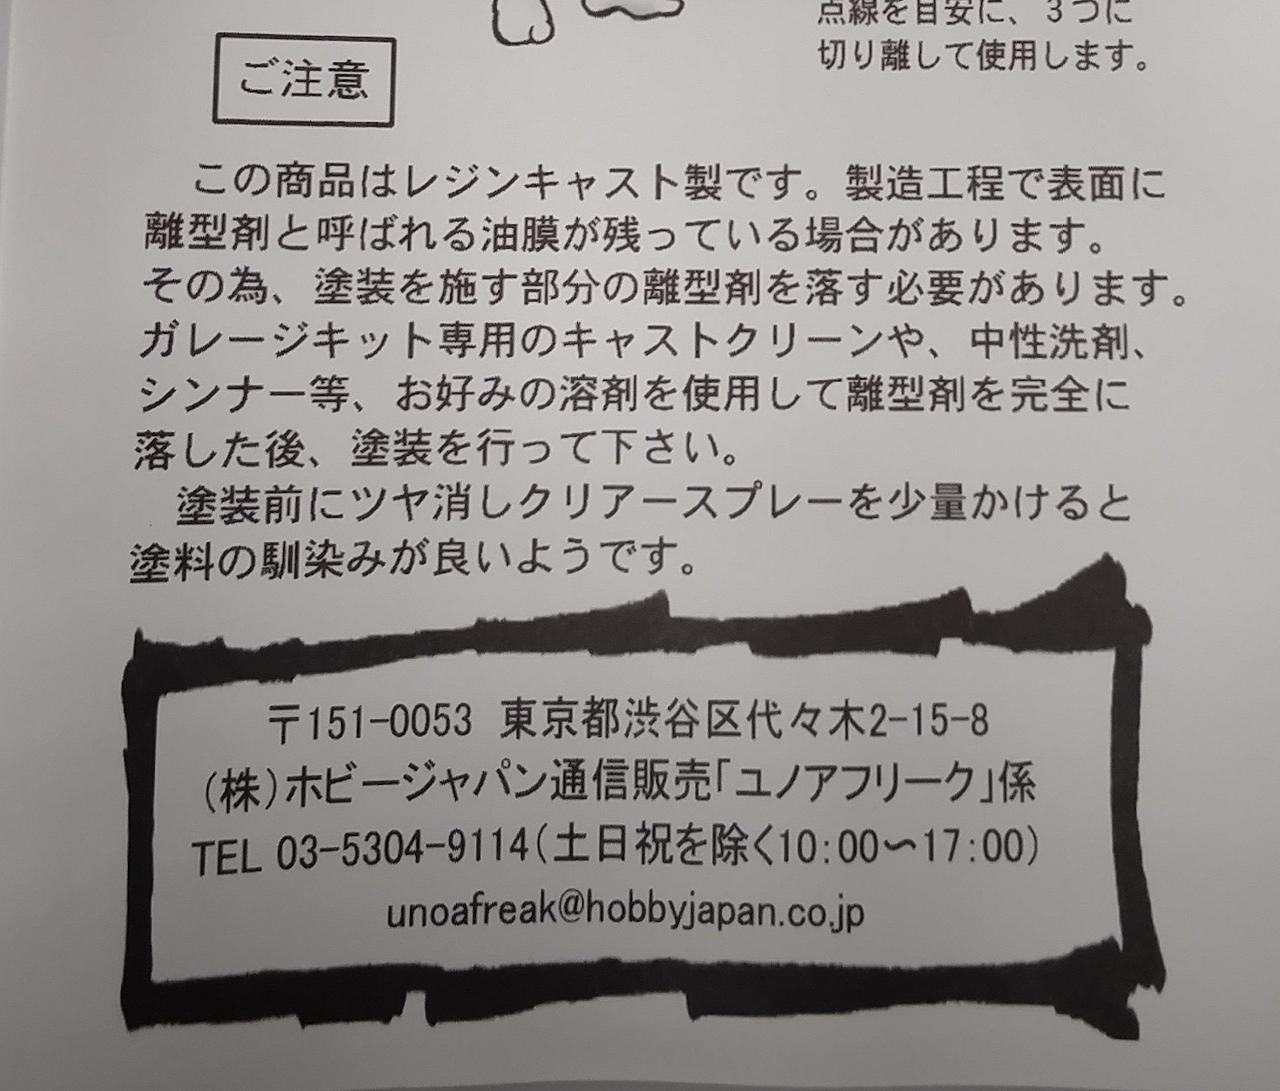 点線を目安に、3つに
切り離して使用します。
ご注意
この商品はレジンキャスト製です。製造工程で表面に
離型剤と呼ばれる油膜が残っている場合があります。
その為、塗装を施す部分の離型剤を落す必要があります。
ガレージキット専用のキャストクリーンや、中性洗剤、
シンナー等、お好みの溶剤を使用して離型剤を完全に
落した後、塗装を行って下さい。
塗装前にツヤ消しクリアースプレーを少量かけると
塗料の馴染みが良いようです。
〒151-0053 東京都渋谷区代々木2-15-8
(株)ホビージャパン通信販売「ユノアフリーク」係
TEL 03-5304-9114(土日祝を除く10:00〜17:00)
unoafreak@hobbyjapan.co.jp